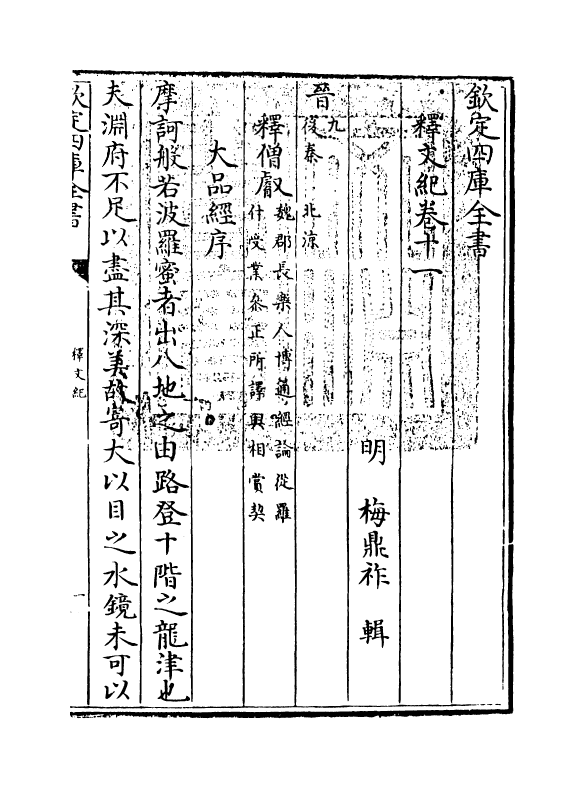 欽定四庫全書
釋文紀卷十一
明 梅鼎祚 輯
晉九
後秦 北涼
釋僧叡魏郡長樂人博通經論從羅
什受業叅正所譯興相賞契
大品經序
摩訶般若波羅蜜者出八地之由路登十階之龍津也
夫淵府不足以盡其深美故寄大以目之水鏡未可以
欽定四庫全書
釋文紀
一